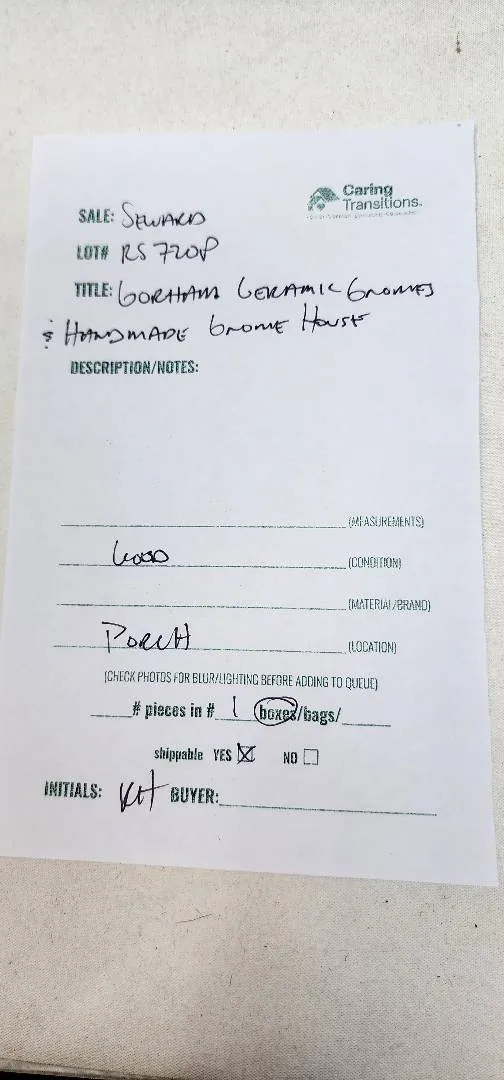 Caring
Transitions.
SALE: SEWARD
LOT# RS720P
TITLE: GORHAM CERAMIC GNOMES
& HANDMADE GNOME HOUSE
DESCRIPTION/NOTES:
(MEASUREMENTS)
GOOD (CONDITION)
(MATERIAL/BRAND)
PORCH (LOCATION)
(CHECK PHOTOS FOR BLUR/LIGHTING BEFORE ADDING TO QUEUE)
# pieces in # 1 boxes/bags/
shippable YES ☒ NO ☐
INITIALS: KH BUYER: